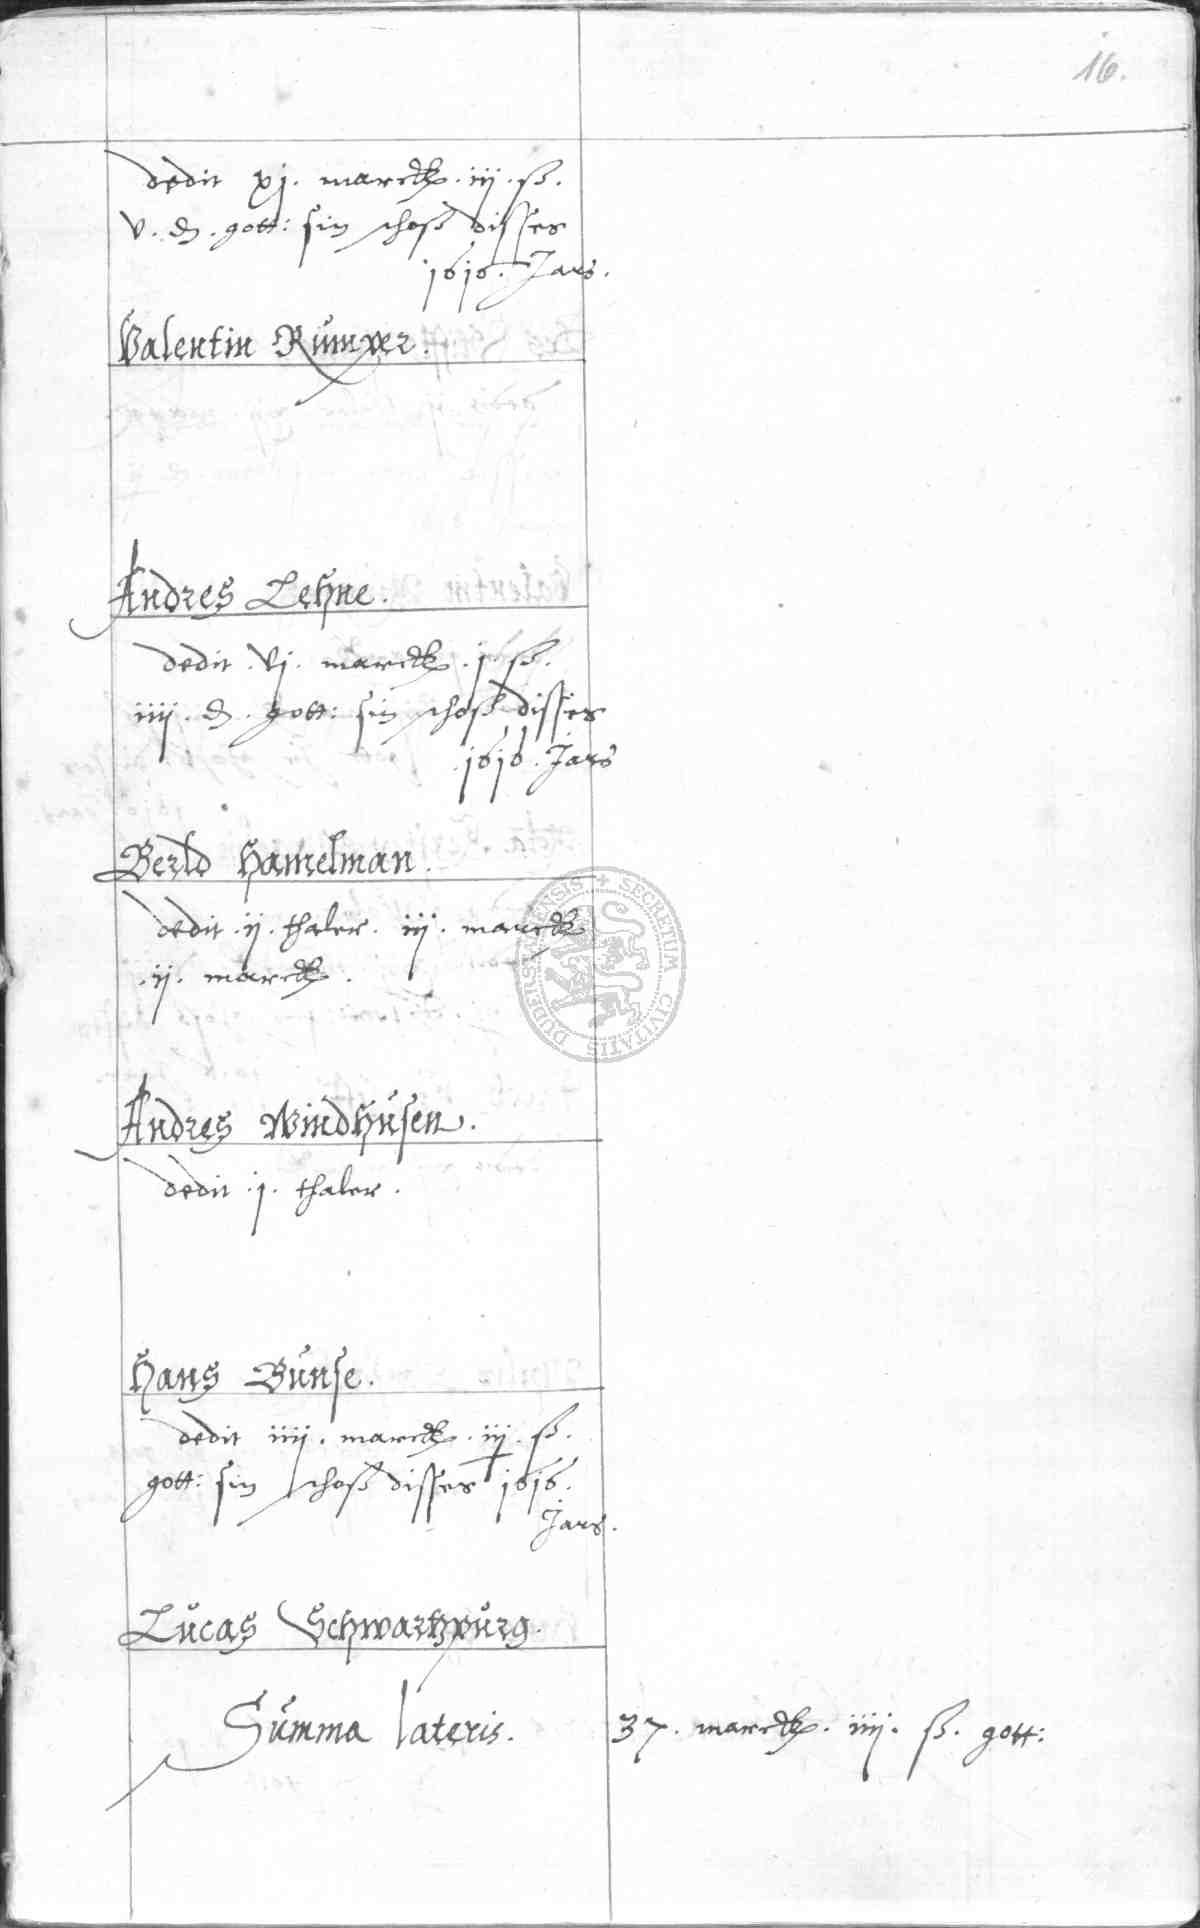 16.
dedit xj. marck. iij. ß.
v. d. gott: sin schoß disses
1616. Jars.
Valentin Rümper.
Andres Lehne.
dedit. vj. marck. j. ß.
iiij. d. gott: sin schoß disses
.1616. Jars
Berld Hamelman.
dedit .ij. thaler. iij. marck
.ij. marck.
Andres Windhüsen.
dedit .j. thaler.
Hans Bünse.
dedit iiij. marck. iij. ß.
gott: sin schoß disses 1616.
Jars.
Lücas Schwartzpürg.
Sümma lateris. 37. marck. iiij. ß. gott:
SECRETUM CIVITATIS DUDERSTADENSIS